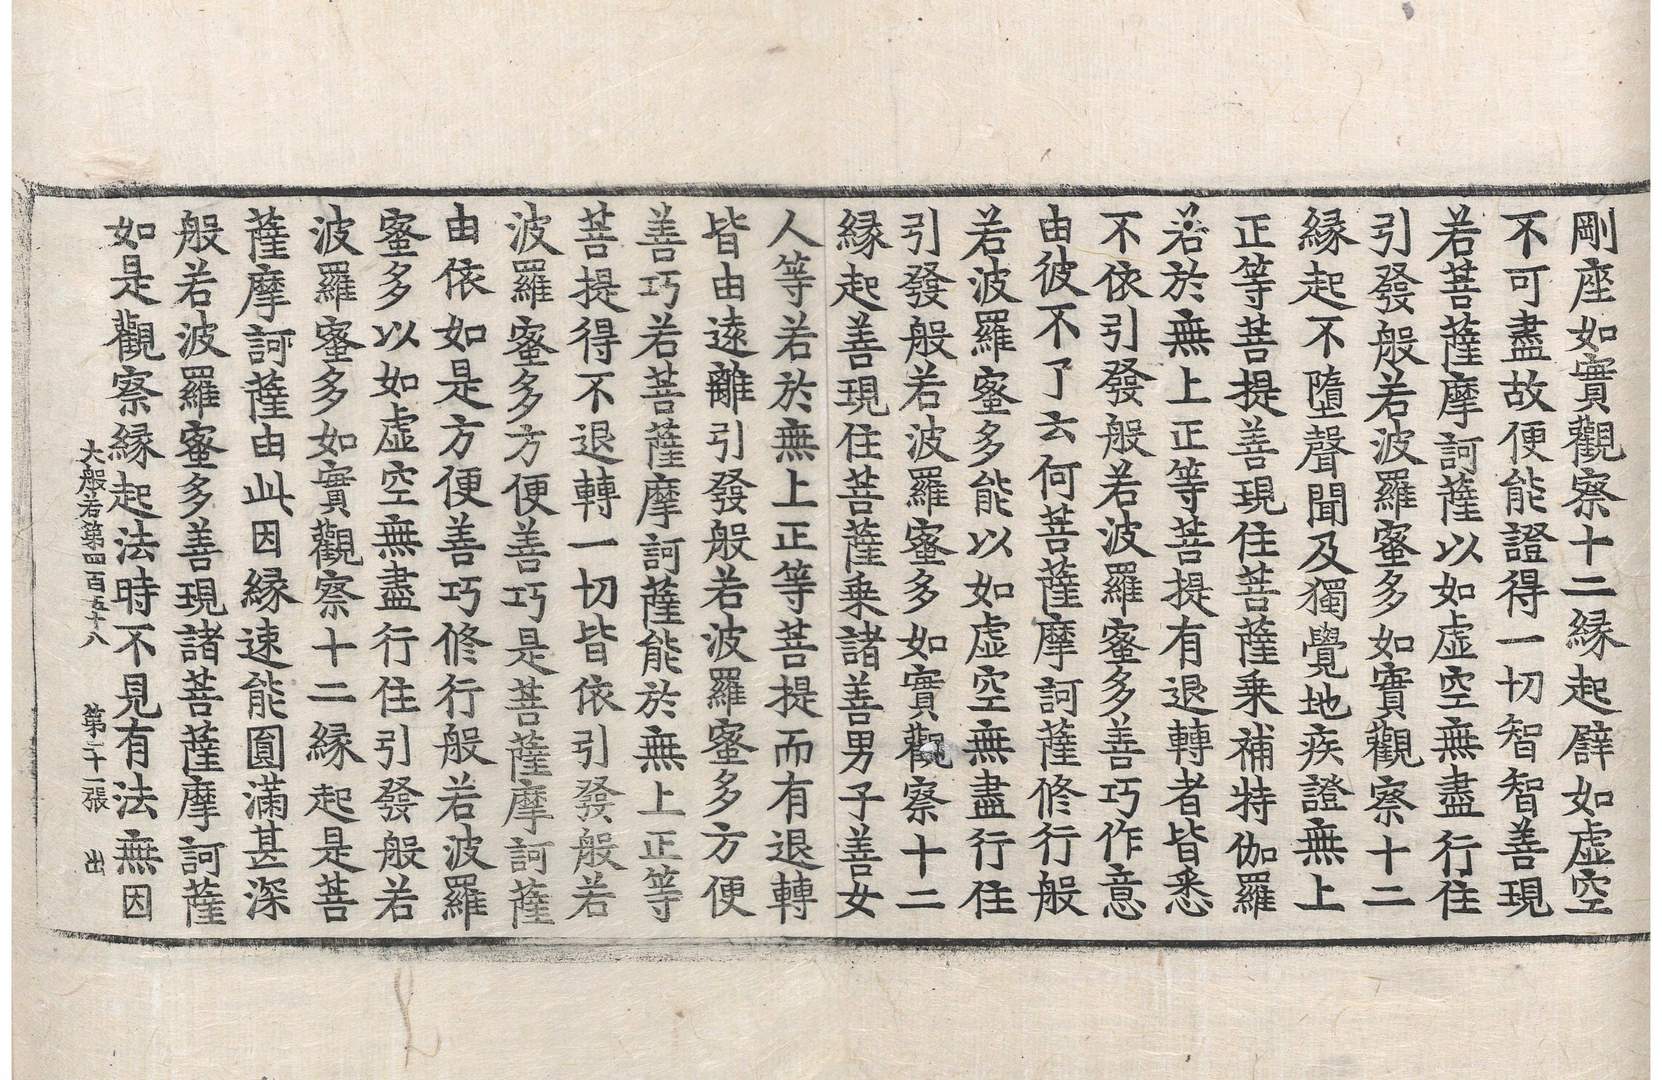 剛座如實觀察十二緣起譬如虛空
不可盡故便能證得一切智智善現
若菩薩摩訶薩以如虛空無盡行住
引發般若波羅蜜多如實觀察十二
緣起不墮聲聞及獨覺地疾證無上
正等菩提善現住菩薩乘補特伽羅
若於無上正等菩提有退轉者皆悉
不依引發般若波羅蜜多善巧作意
由彼不了云何菩薩摩訶薩修行般
若波羅蜜多能以如虛空無盡行住
引發般若波羅蜜多如實觀察十二
緣起善現住菩薩乘諸善男子善女
人等若於無上正等菩提而有退轉
皆由遠離引發般若波羅蜜多方便
善巧若菩薩摩訶薩能於無上正等
菩提得不退轉一切皆依引發般若
波羅蜜多方便善巧是菩薩摩訶薩
由依如是方便善巧修行般若波羅
蜜多以如虛空無盡行住引發般若
波羅蜜多如實觀察十二緣起是菩
薩摩訶薩由此因緣速能圓滿甚深
般若波羅蜜多善現諸菩薩摩訶薩
如是觀察緣起法時不見有法無因
大般若第四百五十八 第二十一張 出